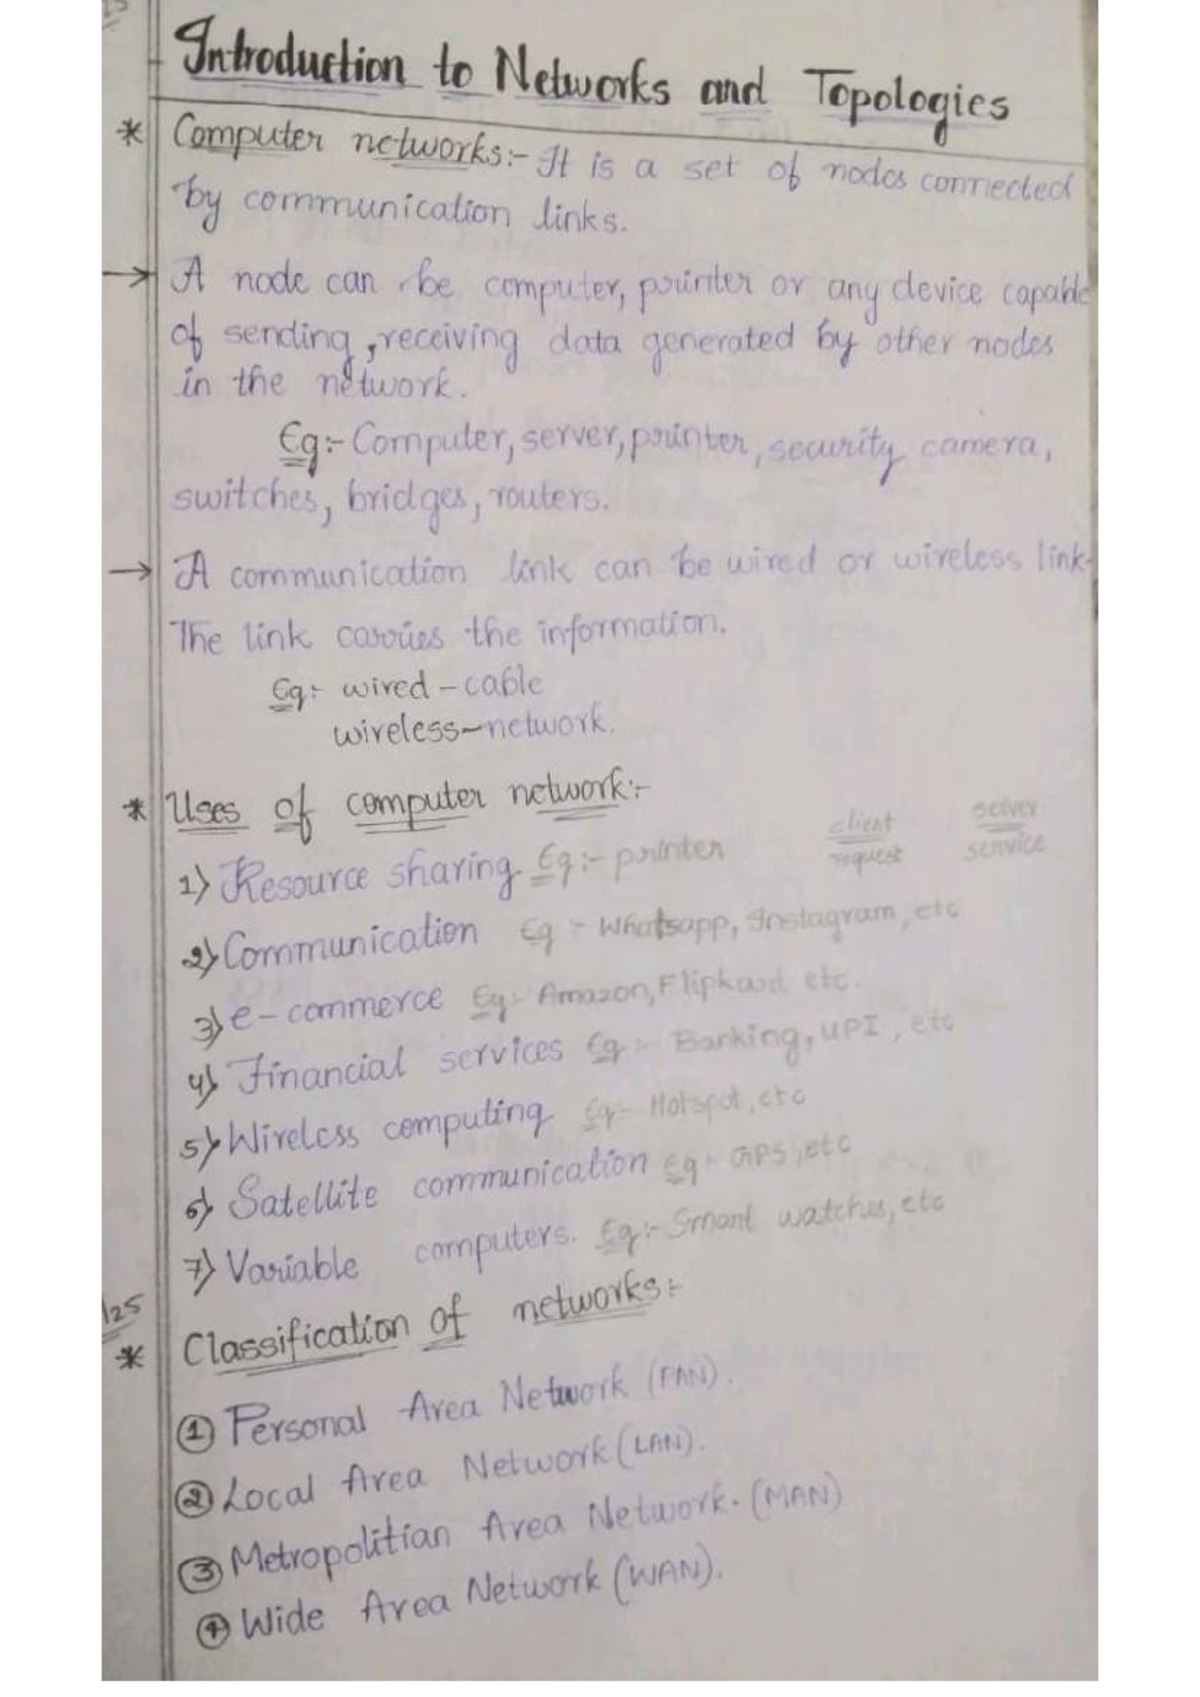 Introduction to Networks and Topologies
* Computer networks:- It is a set of nodes connected
by communication links.
→ A node can be computer, printer or any device capable
of sending, receiving data generated by other nodes
in the network.
Eg:- Computer, server, printer, security camera,
switches, bridges, routers.
→ A communication link can be wired or wireless link.
The link carries the information.
Eg:- wired - cable
wireless - network.
* Uses of computer network:-
client server
request service
1) Resource sharing Eg:- printer
2) Communication Eg:- Whatsapp, Instagram, etc
3) e-commerce Eg:- Amazon, Flipkard etc.
4) Financial services Eg:- Banking, UPI, etc
5) Wireless computing Eg:- Hotspot, etc
6) Satellite communication Eg- GPS, etc
7) Variable computers. Eg:- Smant watches, etc
/25
* Classification of networks:-
① Personal Area Network (PAN).
② Local Area Network (LAN).
③ Metropolitian Area Network. (MAN)
④ Wide Area Network (WAN).